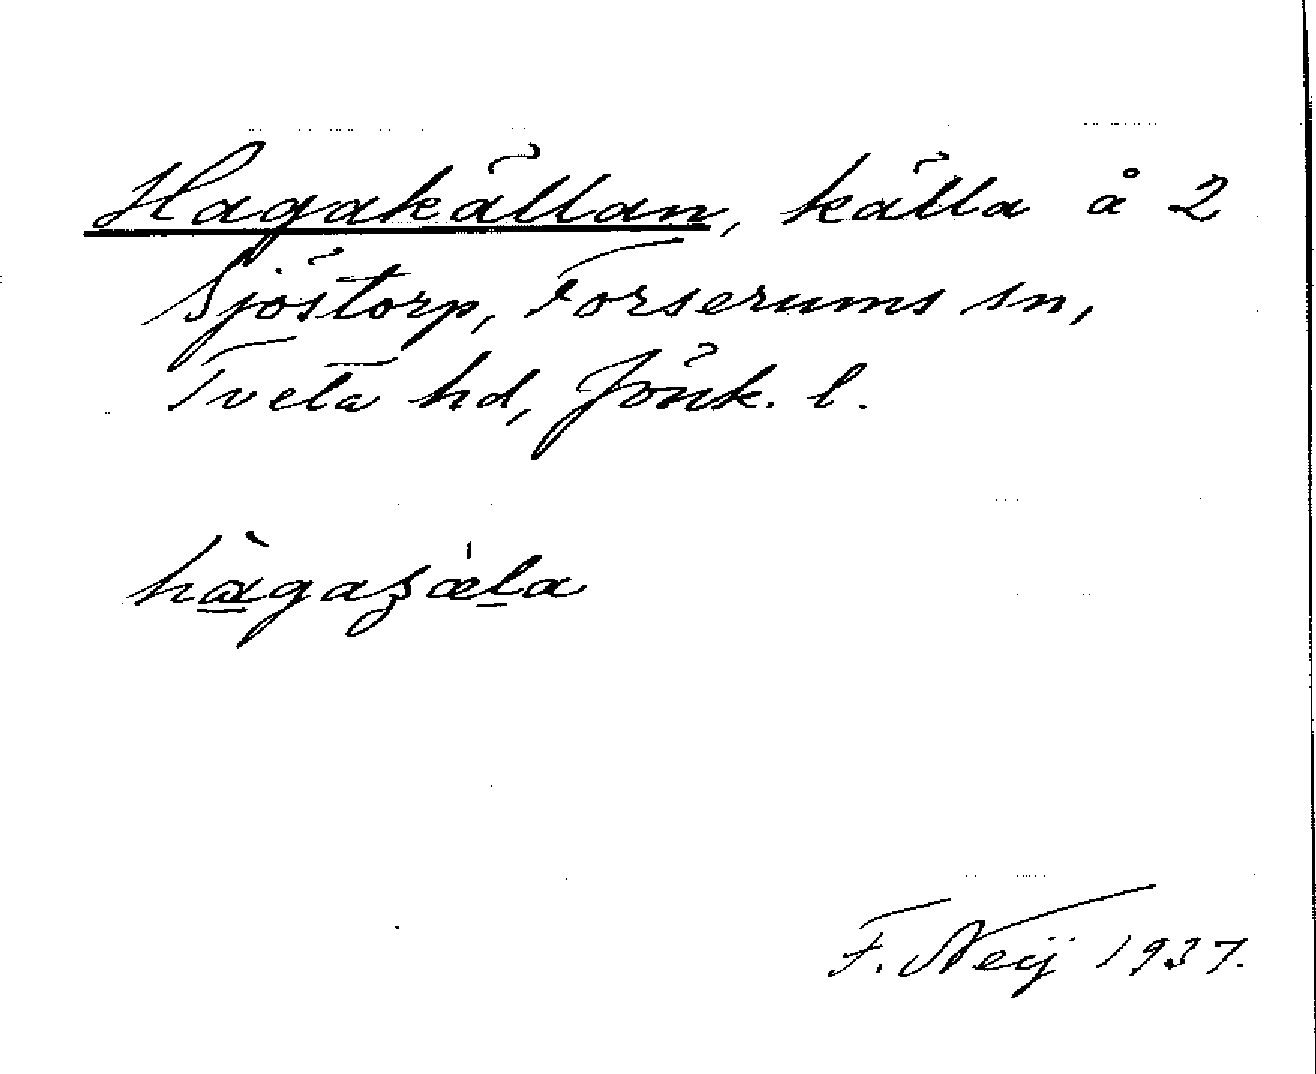 Hagakällan, källa å 2
Sjöstorp, Forserums sn,
Tveta hd, Jönk. l.
hàgaʒæ̍la
F. Neij 1937.